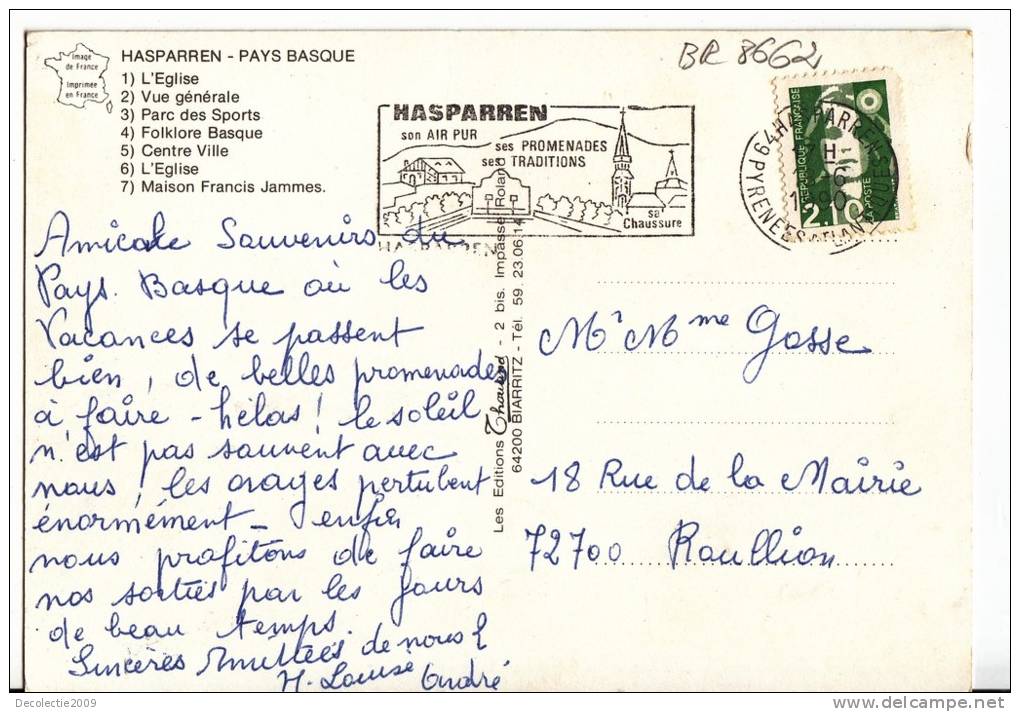 Image
de France
Imprimée
en France
HASPARREN - PAYS BASQUE
1) L'Eglise
2) Vue générale
3) Parc des Sports
4) Folklore Basque
5) Centre Ville
6) L'Eglise
7) Maison Francis Jammes.
BR 8662
HASPARREN
son AIR PUR
ses PROMENADES
ses TRADITIONS
sa
Chaussure
HASPARREN
REPUBLIQUE FRANÇAISE
LA POSTE
2,10
64 HASPARREN
PYRENEES ATLANTIQUES
Amicale Souvenirs du
Pays Basque où les
Vacances se passent
bien, de belles promenades
à faire - hélas! le soleil
n'est pas souvent avec
nous! les orages pertubent
énormément - enfin
nous profitons de faire
nos sorties par les jours
de beau temps.
Sincères Amitiées de nous 2
M. Louise André
Les Editions Thouand - 2 bis. Impasse Roland
64200 BIARRITZ - Tél. 59. 23.06.14
Mr Mme Gosse
18 Rue de la Mairie
72700 Roullion
Decolectie2009
www.delcampe.net